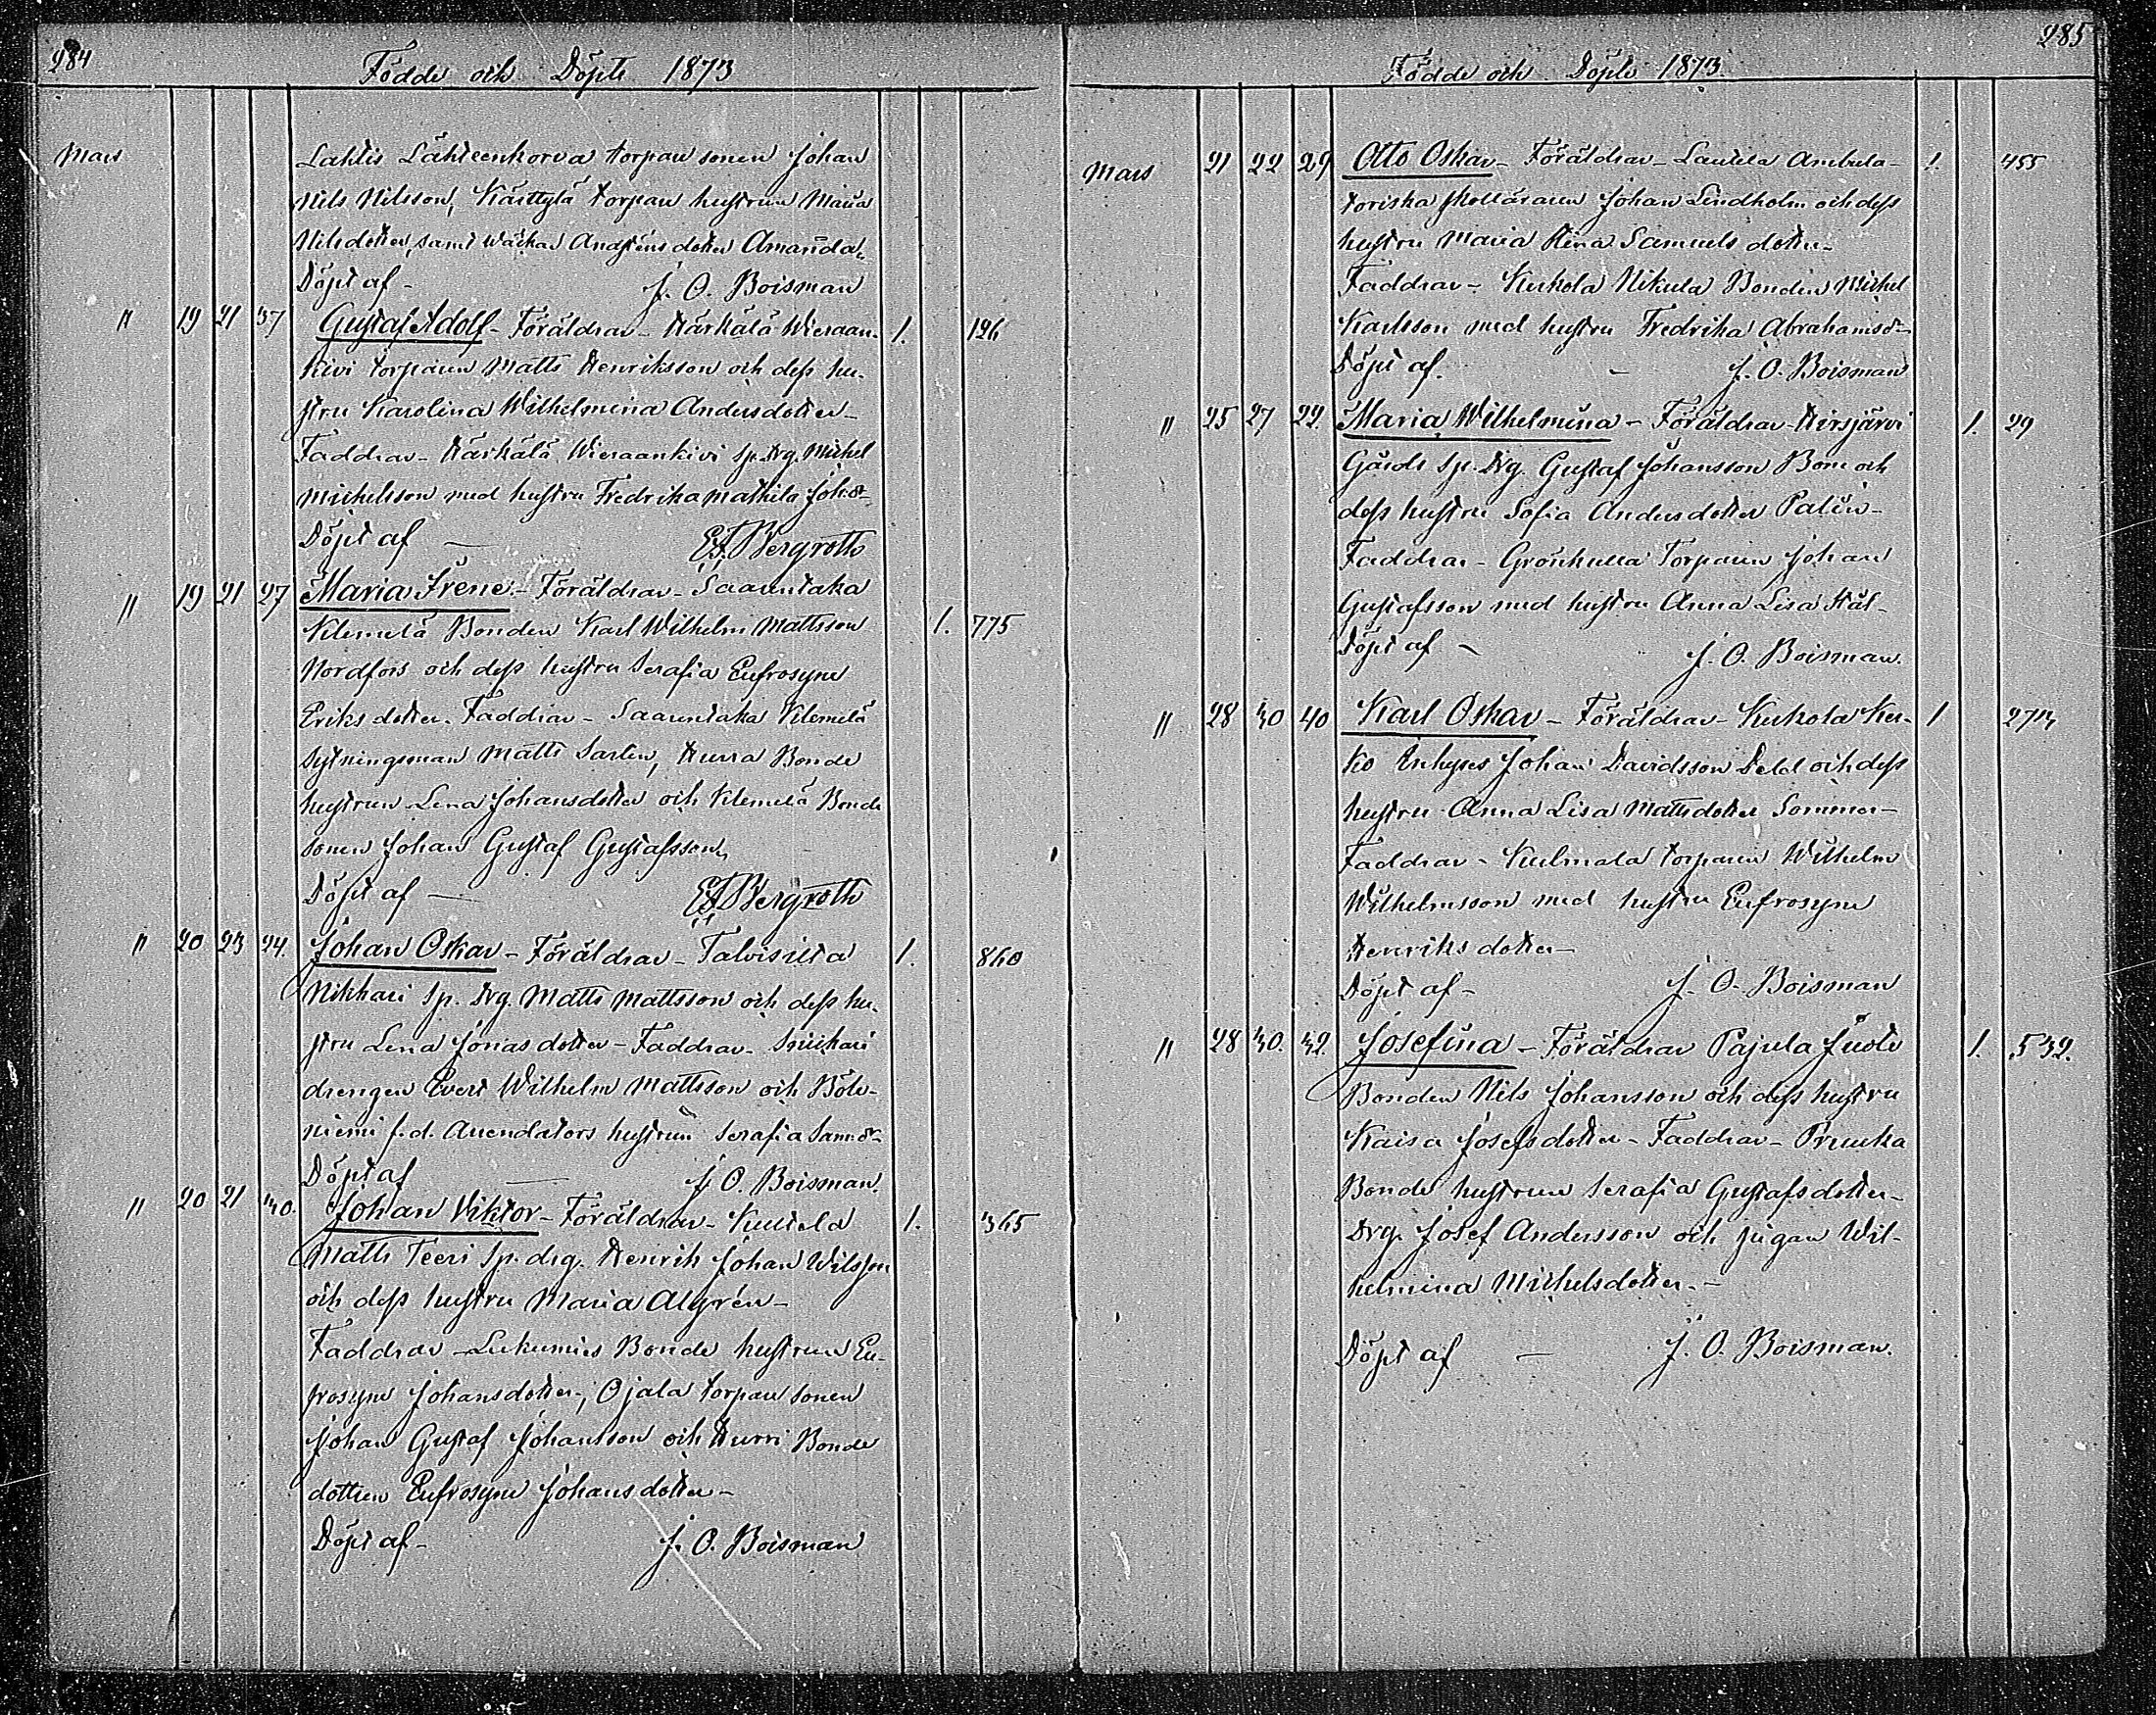 284
Födde och Döpte 1873
Mars
Lahtis Lähteenkorva torpare sonen Johan
Nils Nilsson, Kärttylä torpare hustrun Maria
Nilsdotter, samt Waskas Andstens dotter Amanda.
Döpt af - J. O. Boisman
" 19 21 37 Gustaf Adolf - Föräldrar - Härkälä Wieraan- 1. 126
kivi torparen Matts Henriksson och dess hu-
stru Karolina Wilhelmina Andersdotter -
Faddrar - Härkälä Wieraankivi sp. drg. Michel
Michelsson med hustru Fredrika Mathila Joh:dr
Döpt af - E.F. Bergroth
" 19 21 27 Maria Irene. - Föräldrar - Saarentaka
Klemelä Bonden Karl Wilhelm Mattsson 1. 775
Nordfors och dess hustru Serafia Eufrosyne
Eriks dotter. Faddrar - Saarentaka Klemelä
sytningsman Matts Sarlin, Hurra Bonde
hustrun Lena Johansdotter och Klemelä Bonde
sonen Johan Gustaf Gustafsson,
Döpt af - E.F. Bergroth
" 20 23 24. Johan Oskar - Föräldrar - Talvisilta 1. 860
Nikkari sp. drg. Matts Mattsson och dess hu-
stru Lena Jonas dotter - Faddrar - Snikari
drengen Evert Wilhelm Mattsson och
niemi f.d. Arendators hustrun Serafia Sam:dr
Döpt af - J. O. Boisman.
" 20 21 30. Johan Viktor - Föräldrar - Kultela 1. 365
Matts Teeri sp. drg. Henrik Johan Wilsson
och dess hustru Maria Algrén -
Faddrar - Lukumies Bonde hustrun Eu-
frosyne Johansdotter, Ojala torpare sonen
Johan Gustaf Johansson och Hurri Bonde
dottren Eufrosyne Johansdotter -
Döpt af - J. O. Boisman
285
Födde och Döpte 1873.
Mars 21 22 29 Otto Oskar - Föräldrar - Lautela Ambula- 1. 455
toriska skolläraren Johan Lindholm och dess
hustru Maria Stina Samuels dotter -
Faddrar - Kerkola Nikula Bonden Michel
Karlsson med hustru Fredrika Abrahamsdr
Döpt af. - J. O. Boisman
" 25 27 22. Maria Wilhelmina - Föräldrar - Hirsjärvi 1. 29
Gårds sp. drg. Gustaf Johansson Bom och
dess hustru Sofia Anders dotter Palin -
Faddrar - Grönkulla Torparen Johan
Gustafsson med hustru Anna Lisa Stål -
Döpt af - J. O. Boisman.
" 28 30 40 Karl Oskar - Föräldrar - Kerkola Ker- 1 273
ko Inhyses Johan Davidsson Deld och dess
hustru Anna Lisa Mattsdotter Sommer -
Faddrar - Kulmala torparen Wilhelm
Wilhelmsson med hustru Eufrosyne
Henriks dotter -
Döpt af - J. O. Boisman
" 28 30. 32. Josefina - Föräldrar Pajula Juoti 1. 532.
Bonden Nils Johansson och dess hustru
Kaisa Josefsdotter - Faddrar - Prunka
Bonde hustrun Serafia Gustafsdotter -
Drg. Josef Andersson och pigan Wil-
helmina Michelsdotter. -
Döpt af - J. O. Boisman.